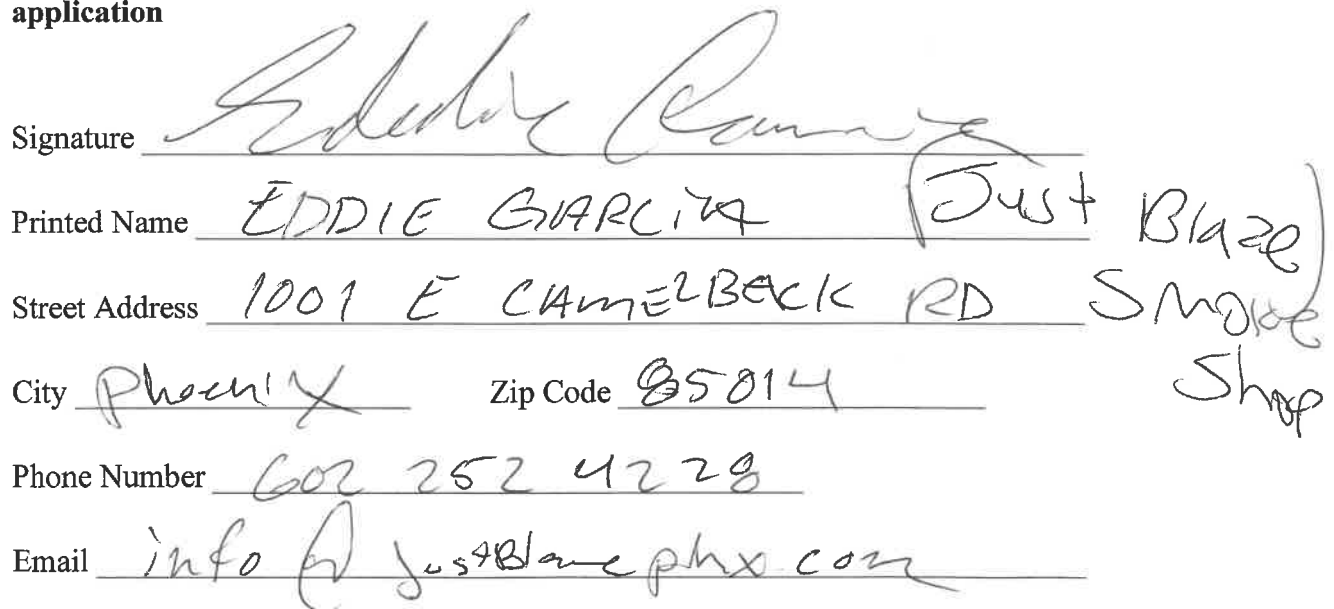 application
Signature Eddie Ramirez
Printed Name EDDIE GARCIA (Just Blaze
Street Address 1001 E CAMELBACK RD Smoke
City Phoenix Zip Code 85014 Shop)
Phone Number 602 252 4228
Email info @ justBlazephx com